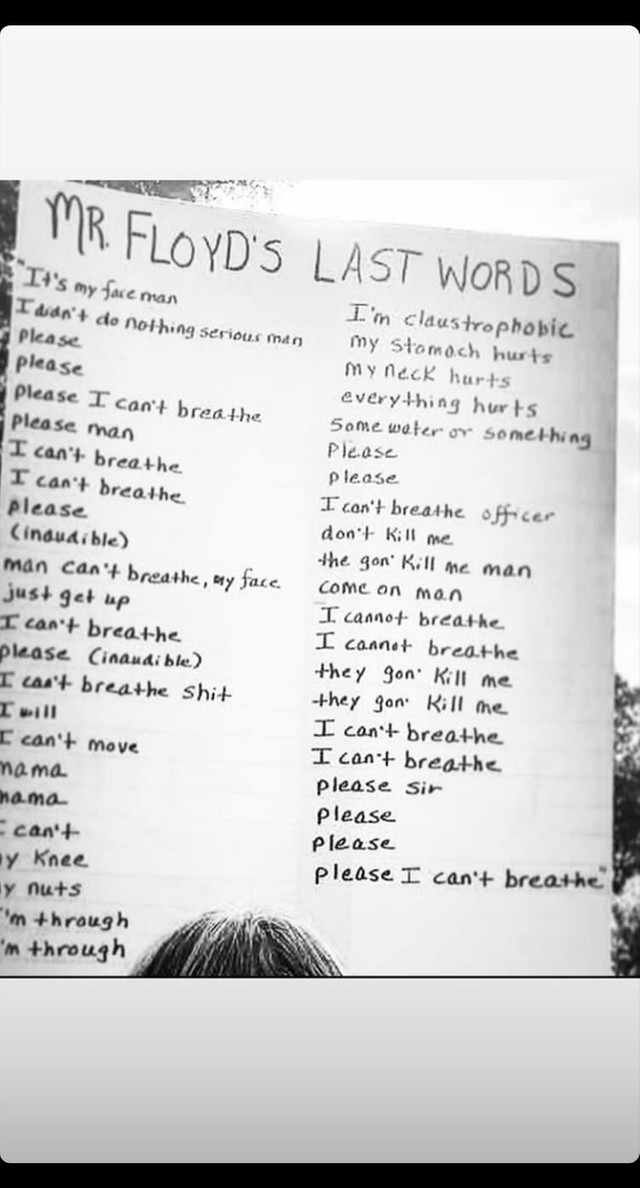 MR. FLOYD'S LAST WORDS
"It's my face man
I didn't do nothing serious man
please
please
please I can't breathe
please man
I can't breathe
I can't breathe
please
(inaudible)
man can't breathe, my face
just get up
I can't breathe
please (inaudible)
I can't breathe shit
I will
I can't move
mama
mama
I can't
y Knee
y nuts
I'm through
I'm through
I'm claustrophobic
my stomach hurts
my neck hurts
everything hurts
some water or something
please
please
I can't breathe officer
don't kill me
the gon' kill me man
come on man
I cannot breathe
I cannot breathe
they gon' kill me
they gon' kill me
I can't breathe
I can't breathe
please sir
please
please
please I can't breathe"